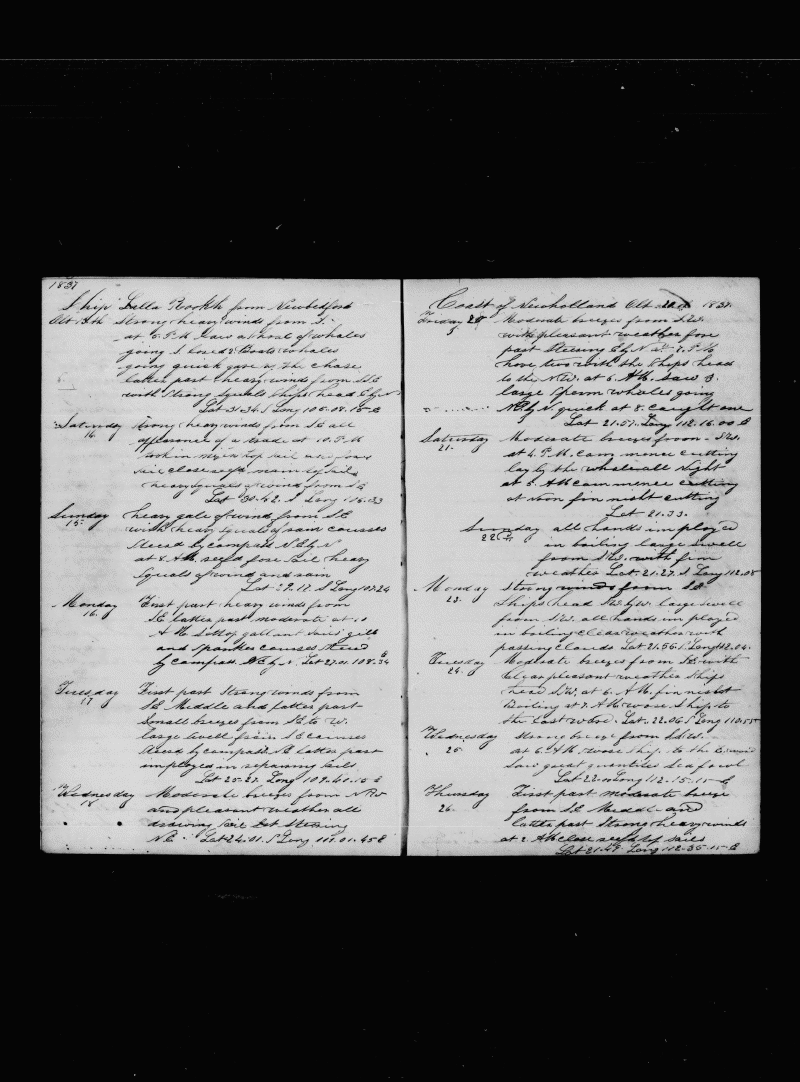 1837
Ship Lalla Rookh from Newbedford
Strong heavy winds from S.
at 5 P M saw a shoal of whales
going S. lowed 3 Boats whales
going quick gave up the chase
latter part heavy winds from S E
with Strong Squals Ships head E by N
Lat 31.34 S Long 105.08.15 E
Saturday Strong heavy winds from S E all
appearance of a trade at 10. P. M
took in
sail close reefd main topsail
heavy squals of wind from S E
Lat 30.42. S Long 106.33
Sunday heavy gale of wind from S E
15 with heavy squals of rain courses
Steerd by compass N E by N
at 8 A M. reefd fore sail heavy
Squals of wind and rain
Lat 29.17. S Long 107.24
Monday First part heavy winds from
16 S E. latter part moderate at 10
A M. Sett top gallant sails gibb
and Spanker courses Steerd
by compass N E by N. Lat 27.01 108.34 E
Tuesday First part Strong winds from
17 S E Middle and latter part
Small breezes from S E to W.
large Swell from S E courses
Steerd by compass N E latter part
imployed in repairing Sails
Lat 25.27. Long 109.40.15 E
Wednesday Moderate breezes from N W
18 and pleasent weather all
drawing Sail Set Steering
N E. Lat 24.01. S Long 111.01.45 E
Coast of Newholland Oct 1837.
Friday Moderate breezes from S W.
with pleasent weather fore
part Steering E by N at 7. P. M
hove two with the Ships head
to the N W. at 6. A M. Saw 3.
large Sperm whales going
N E by N quick at 8. caught one
Lat 21.57. Long 112.16.00 E
Saturday Moderate breezes from S W.
21. at 4. P. M. commence cutting
lay by the whale all Night
at 5. A M commence cutting
at Noon finnisht cutting
Lat 21.33.
Sunday all hands imployed
22 in boiling large swell
from S W. with fine
weather Lat. 21.27. S Long 112.08
Monday Strong winds from S E
23. Ships head S W by W. large swell
from S W. all hands imployed
in boiling clear weather with
passing clouds Lat 21.56. S Long 112.04.
Tuesday Moderate breezes from S E with
24. clear pleasent weather Ships
head S W. at 6. A M. finnisht
Boiling at 7. A M wore Ship to
the Eastward. Lat. 22.06 S Long 110.55
Wednesday Strong breeze from S S W.
25 at 6. A M. wore Ship to the
Saw great quantites Sea fowl
Lat 22.00 Long 112.15.15 E
Thursday First part moderate breeze
26. from S E Middl and
latter part Strong heavy winds
at 2 A M close reefd top Sails
Lat 21.49. Long 112.35.15 E